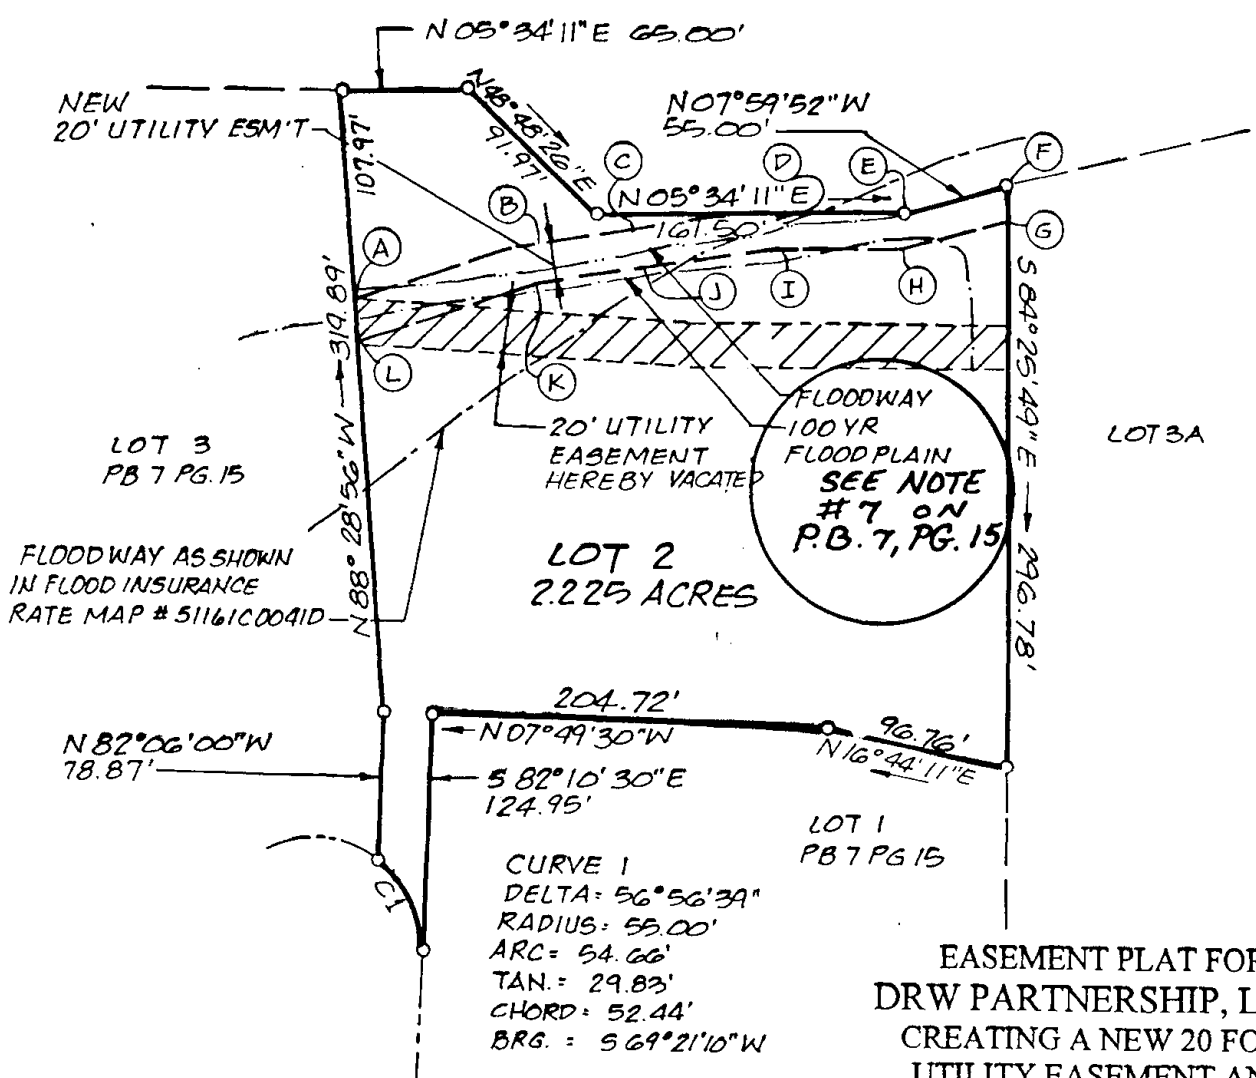 N 05°34'11"E 65.00'
NEW
20' UTILITY ESM'T
107.97'
N48°48'26"E
91.97'
N07°59'52"W
55.00'
C
D
E
F
B
N05°34'11"E
167.50'
A
G
J
I
H
L
K
N 88° 28'56"W 319.89'
S 84°25'49"E 296.78'
LOT 3
PB 7 PG. 15
20' UTILITY
EASEMENT
HEREBY VACATED
FLOODWAY
100 YR
FLOOD PLAIN
SEE NOTE
# 7 ON
P.B. 7, PG. 15
LOT 3A
FLOODWAY AS SHOWN
IN FLOOD INSURANCE
RATE MAP # 51161C0041D
LOT 2
2.225 ACRES
204.72'
N07°49'30"W
96.76'
N16°44'11"E
N82°06'00"W
78.87'
S 82°10'30"E
124.95'
LOT 1
PB 7 PG 15
C1
CURVE 1
DELTA= 56°56'39"
RADIUS= 55.00'
ARC= 54.66'
TAN.= 29.83'
CHORD= 52.44'
BRG. = S 69°21'10"W
EASEMENT PLAT FOR
DRW PARTNERSHIP, L
CREATING A NEW 20 FO
UTILITY EASEMENT AN